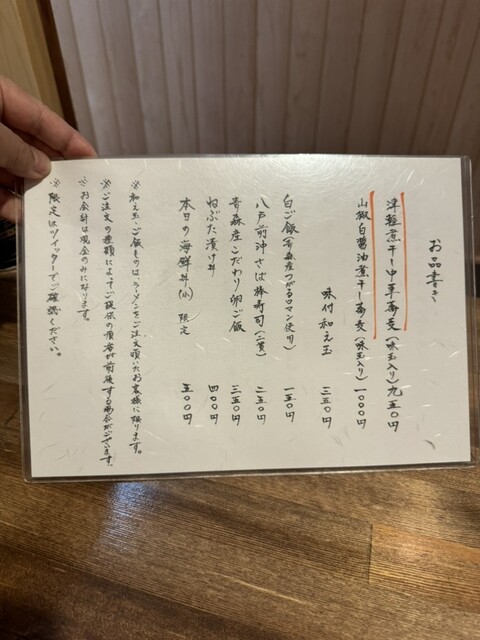 お品書き
津軽煮干中華蕎麦(味玉入り)九五〇円
山椒白醤油煮干し蕎麦(味玉入り)一〇〇〇円
味付和え玉 三五〇円
白ご飯(青森産つがるロマン使用) 一五〇円
八戸前沖さば棒寿司(二貫) 二五〇円
青森産こだわり卵ご飯 三五〇円
ねぶた漬け丼 四〇〇円
本日の海鮮丼(小)限定 五〇〇円
※和え玉・ご飯ものは、ラーメンをご注文頂いたお客様に限ります。
※ご注文の種類によってご提供の順番が前後する場合がございます。
※お会計は現金のみになります。
※限定はツイッターでご確認ください。